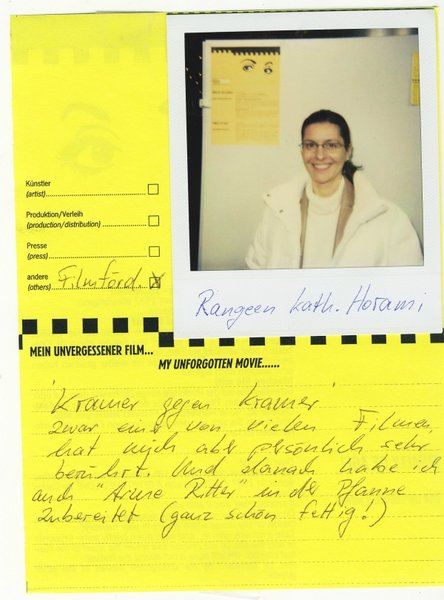 Künstler
(artist)
Produktion/Verleih
(production/distribution)
Presse
(press)
andere
(others) Filmförd.
Rangeen Kath. Horami
MEIN UNVERGESSENER FILM...
MY UNFORGOTTEN MOVIE......
'Kramer gegen Kramer'
zwar einer von vielen Filmen,
hat mich aber persönlich sehr
berührt. Und danach habe ich
auch "Arme Ritter" in der Pfanne
zubereitet (ganz schön fettig!)